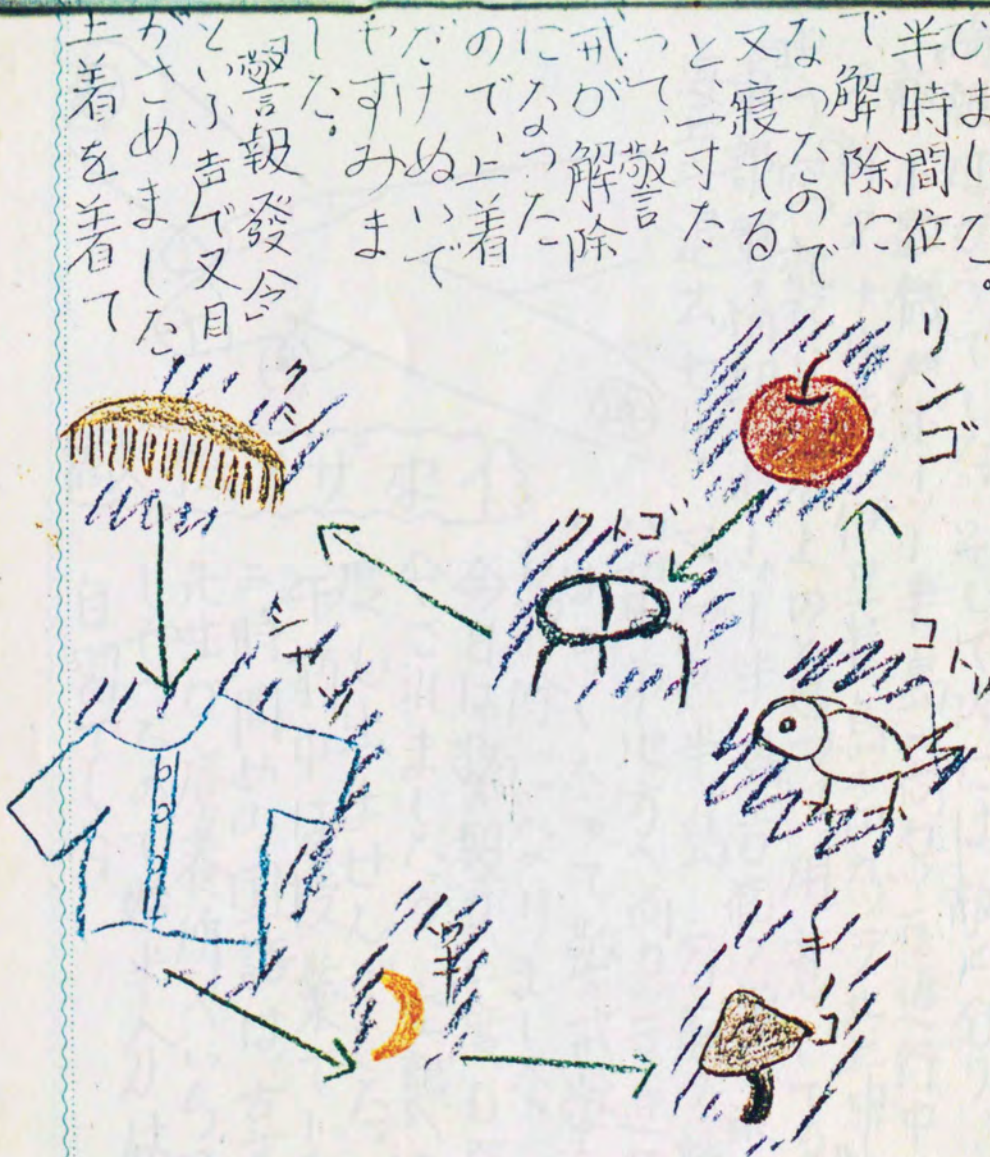 じました。
半時間位
で解除に
なつたので
又寝てる
と、一寸た
って、警
戒が解除
になった
ので、上着
だけぬいで
やすみま
した。
「警報發令」
といふ声で又目
がさめました
上着を着て
リンゴ
クシ
シャツ
コトリ
キノコ